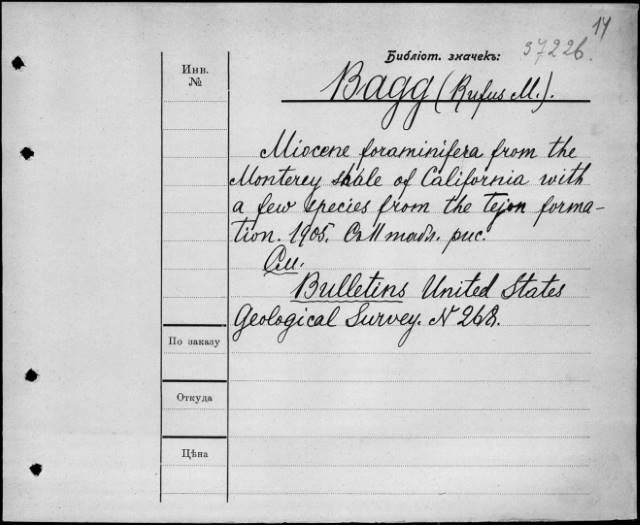 14
Библіот. значекъ: 37226.
Инв. №
Bagg (Rufus M.).
Miocene foraminifera from the
Monterey shale of California with
a few species from the Tejon forma-
tion. 1905. Съ 11 табл. рис.
См.
Bulletins United States
Geological Survey. N 268.
По заказу
Откуда
Цѣна